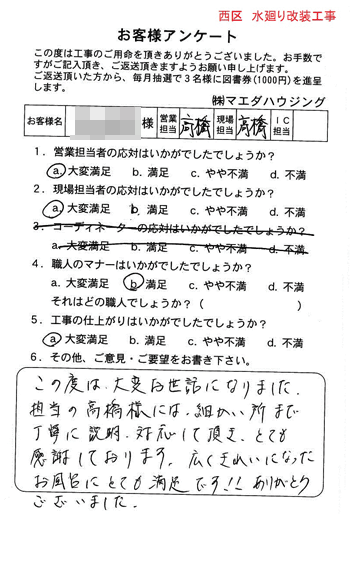 西区　水廻り改装工事
お客様アンケート
この度は工事のご用命を頂きありがとうございました。お手数で
すがご記入頂き、ご返送頂きますようお願い申し上げます。
ご返送頂いた方から、毎月抽選で３名様に図書券(1000円)を進呈
します。
㈱マエダハウジング
お客様名 様 営業担当 高橋 現場担当 高橋 ＩＣ担当
１．営業担当者の応対はいかがでしたでしょうか？
a. 大変満足　b. 満足　c. やや不満　d. 不満
２．現場担当者の応対はいかがでしたでしょうか？
a. 大変満足　b. 満足　c. やや不満　d. 不満
３．コーディネーターの応対はいかがでしたでしょうか？
a. 大変満足　b. 満足　c. やや不満　d. 不満
４．職人のマナーはいかがでしたでしょうか？
a. 大変満足　b. 満足　c. やや不満　d. 不満
それはどの職人でしょうか？（　　　　　　　）
５．工事の仕上がりはいかがでしたでしょうか？
a. 大変満足　b. 満足　c. やや不満　d. 不満
６．その他、ご意見・ご要望をお書き下さい。
この度は、大変お世話になりました。
担当の高橋様には、細かい所まで
丁寧に説明、対応して頂き、とても
感謝しております。広くきれいになった
お風呂にとても満足です!! ありがとう
ございました。